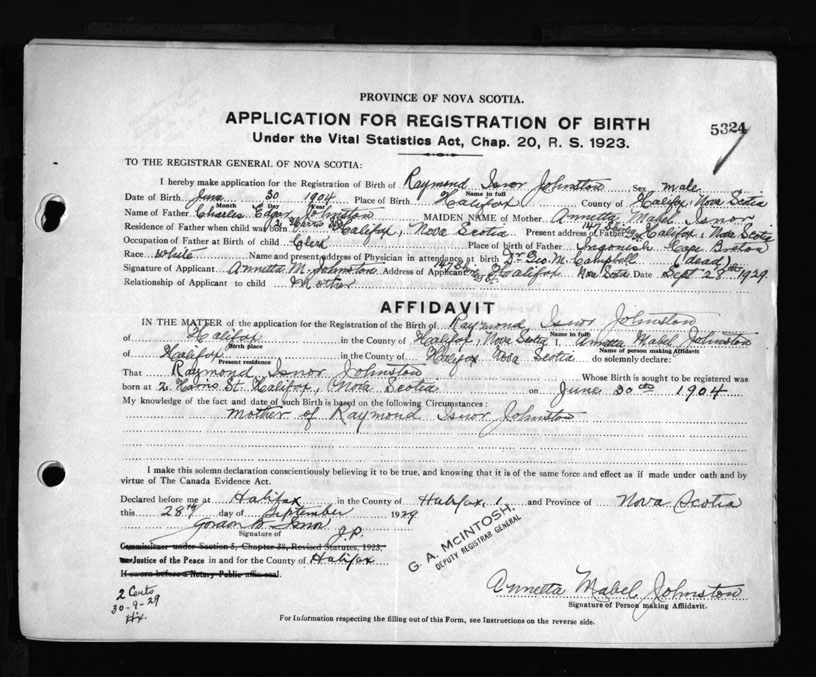 PROVINCE OF NOVA SCOTIA.
APPLICATION FOR REGISTRATION OF BIRTH
5324
Under the Vital Statistics Act, Chap. 20, R. S. 1923.
TO THE REGISTRAR GENERAL OF NOVA SCOTIA:
I hereby make application for the Registration of Birth of Raymond Isnor Johnston Sex male
Name in full
Date of Birth June 30 1904 Place of Birth Halifax County of Halifax, Nova Scotia
Month Day Year
Name of Father Charles Edgar Johnston MAIDEN NAME of Mother Annetta Mabel Isnor
Residence of Father when child was born 2 Harris St Halifax, Nova Scotia Present address of Father Halifax, Nova Scotia
Occupation of Father at Birth of child Clerk Place of birth of Father Ingonish Cape Breton
Race White Name and present address of Physician in attendance at Birth Dr. Geo. M. Campbell (dead)
Signature of Applicant Annetta M. Johnston Address of Applicant Halifax Nova Scotia Date Sept 28th 1929.
Relationship of Applicant to child Mother
AFFIDAVIT
IN THE MATTER of the application for the Registration of the Birth of Raymond Isnor Johnston
Name in full
of Halifax in the County of Halifax, Nova Scotia I, Annetta Mabel Johnston
Birth place Name of person making Affidavit
of Halifax in the County of Halifax Nova Scotia do solemnly declare:
Present residence
That Raymond Isnor Johnston Whose Birth is sought to be registered was
born at 2. Harris St. Halifax, Nova Scotia on June 30th 1904
My knowledge of the fact and date of such Birth is based on the following Circumstances:
Mother of Raymond Isnor Johnston
I make this solemn declaration conscientiously believing it to be true, and knowing that it is of the same force and effect as if made under oath and by
virtue of The Canada Evidence Act.
Declared before me at Halifax in the County of Halifax, and Province of Nova Scotia
this 28th day of September 1929
Gordon B. Isnor J.P.
Signature of
Commissioner under Section 5, Chapter 38, Revised Statutes, 1923,
Justice of the Peace in and for the County of Halifax
If sworn before a Notary Public affix seal.
G. A. McINTOSH,
DEPUTY REGISTRAR GENERAL
2 Certs
30-9-29
Annetta Mabel Johnston
Signature of Person making Affidavit.
For Information respecting the filling out of this Form, see Instructions on the reverse side.